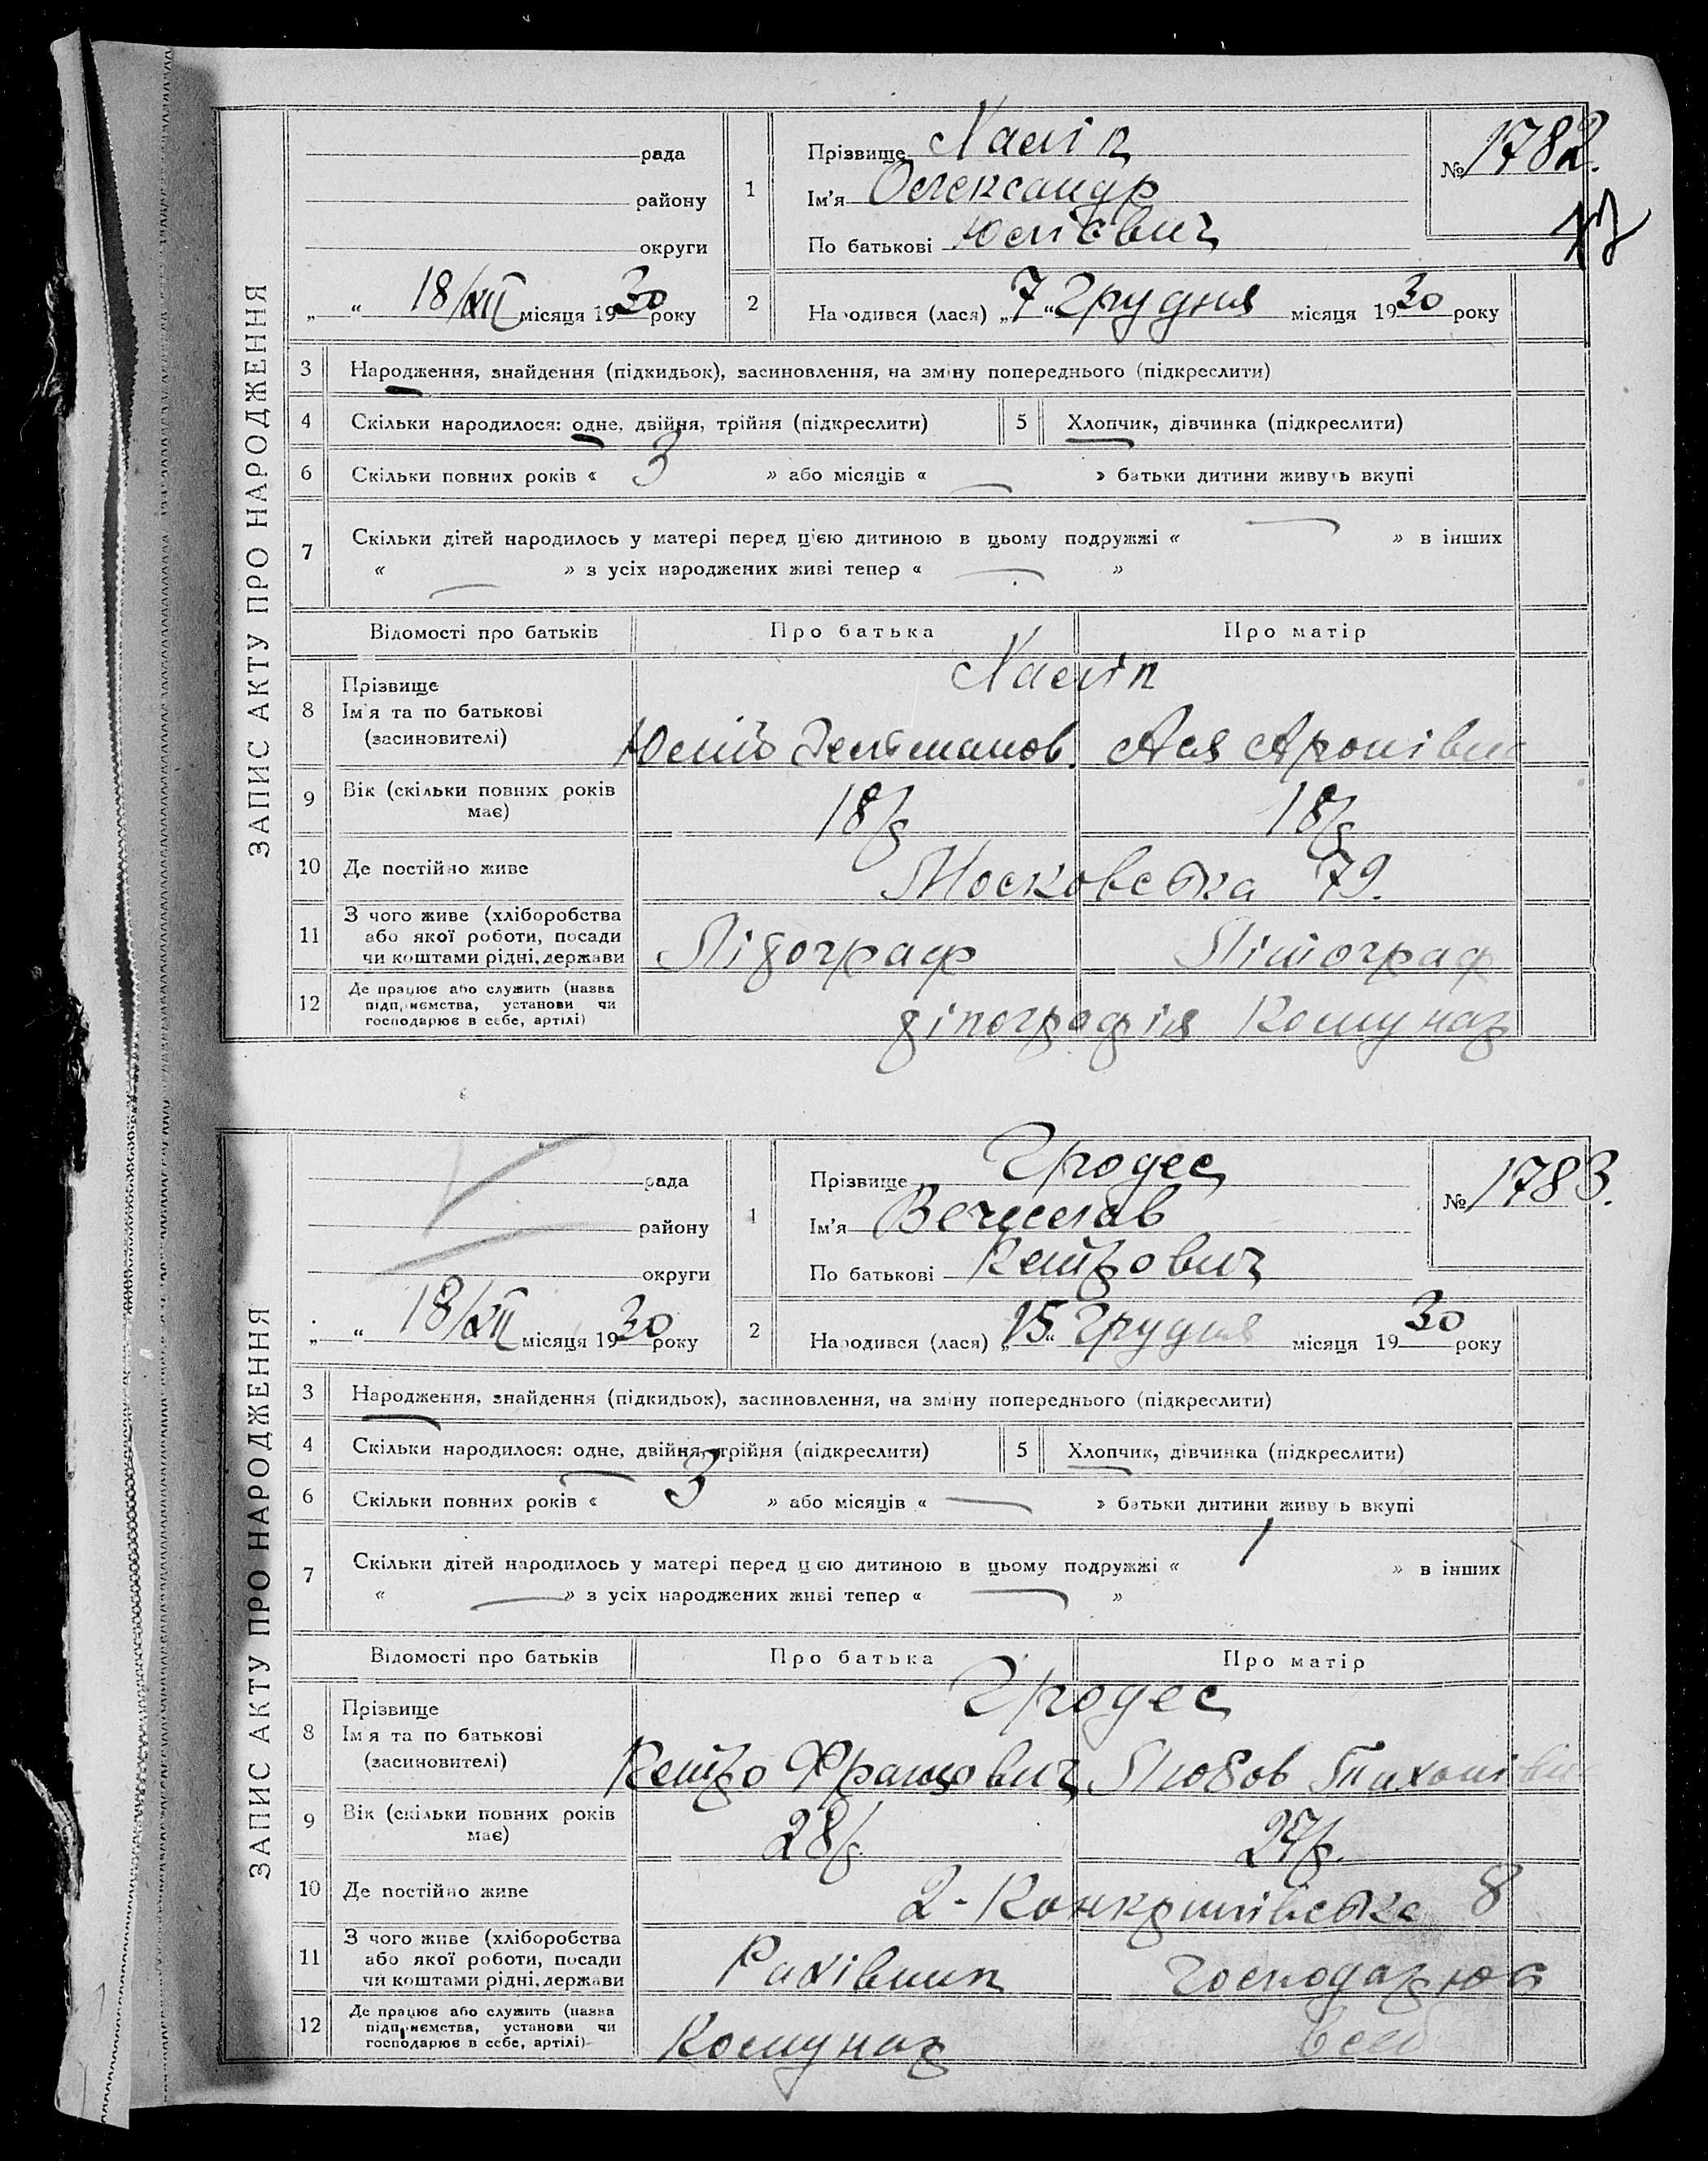 ЗАПИС АКТУ ПРО НАРОДЖЕННЯ
рада
району
округи
„ “ 18/XII місяця 1930 року
1
Прізвище
Ім'я Олександр
По батькові Юлієвич
№ 1782.
2
Народився (лася) „7“ Грудня місяця 1930 року
3 Народження, знайдення (підкидьок), засиновлення, на зміну попереднього (підкреслити)
4 Скільки народилося: одне, двійня, трійня (підкреслити)
5 Хлопчик, дівчинка (підкреслити)
6 Скільки повних років « 3 » або місяців « — » батьки дитини живуть вкупі
7 Скільки дітей народилось у матері перед цією дитиною в цьому подружжі « — » в інших
« — » з усіх народжених живі тепер « — »
Відомості про батьків Про батька Про матір
8 Прізвище
Ім'я та по батькові
(засиновителі)
Юлій Ася Аронівна
9 Вік (скільки повних років
має)
18/р 18/р
10 Де постійно живе Московська 79.
11 З чого живе (хліборобства
або якої роботи, посади
чи коштами рідні, держави
Літограф Літограф
12 Де працює або служить (назва
підприємства, установи чи
господарює в себе, артілі)
тіпографія Комунар
ЗАПИС АКТУ ПРО НАРОДЖЕННЯ
рада
району
округи
„ “ 18/XII місяця 1930 року
1
Прізвище Гродес
Ім'я Вечеслав
По батькові
№ 1783.
2
Народився (лася) „15“ Грудня місяця 1930 року
3 Народження, знайдення (підкидьок), засиновлення, на зміну попереднього (підкреслити)
4 Скільки народилося: одне, двійня, трійня (підкреслити)
5 Хлопчик, дівчинка (підкреслити)
6 Скільки повних років « 3 » або місяців « — » батьки дитини живуть вкупі
7 Скільки дітей народилось у матері перед цією дитиною в цьому подружжі « 1 » в інших
« — » з усіх народжених живі тепер « — »
Відомості про батьків Про батька Про матір
Гродес
8 Прізвище
Ім'я та по батькові
(засиновителі)
Францович Любов Тихонівна
9 Вік (скільки повних років
має)
28/р 27/р.
10 Де постійно живе 2- 8
11 З чого живе (хліборобства
або якої роботи, посади
чи коштами рідні, держави
Рахівник господарює
12 Де працює або служить (назва
підприємства, установи чи
господарює в себе, артілі)
Комунар в себ